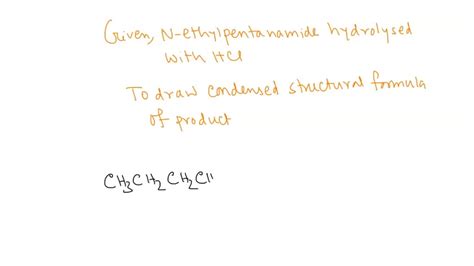 Given, N-ethylpentanamide hydrolysed
with HCl
To draw condensed structural formula
of product
CH₃CH₂CH₂C